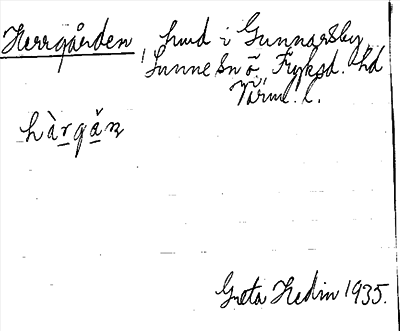 Herrgården, hmd i Gunnarsby
Sunne sn o, Fryksd. hd
Värml. l.
hàrgǻn
Greta Hedin 1935.